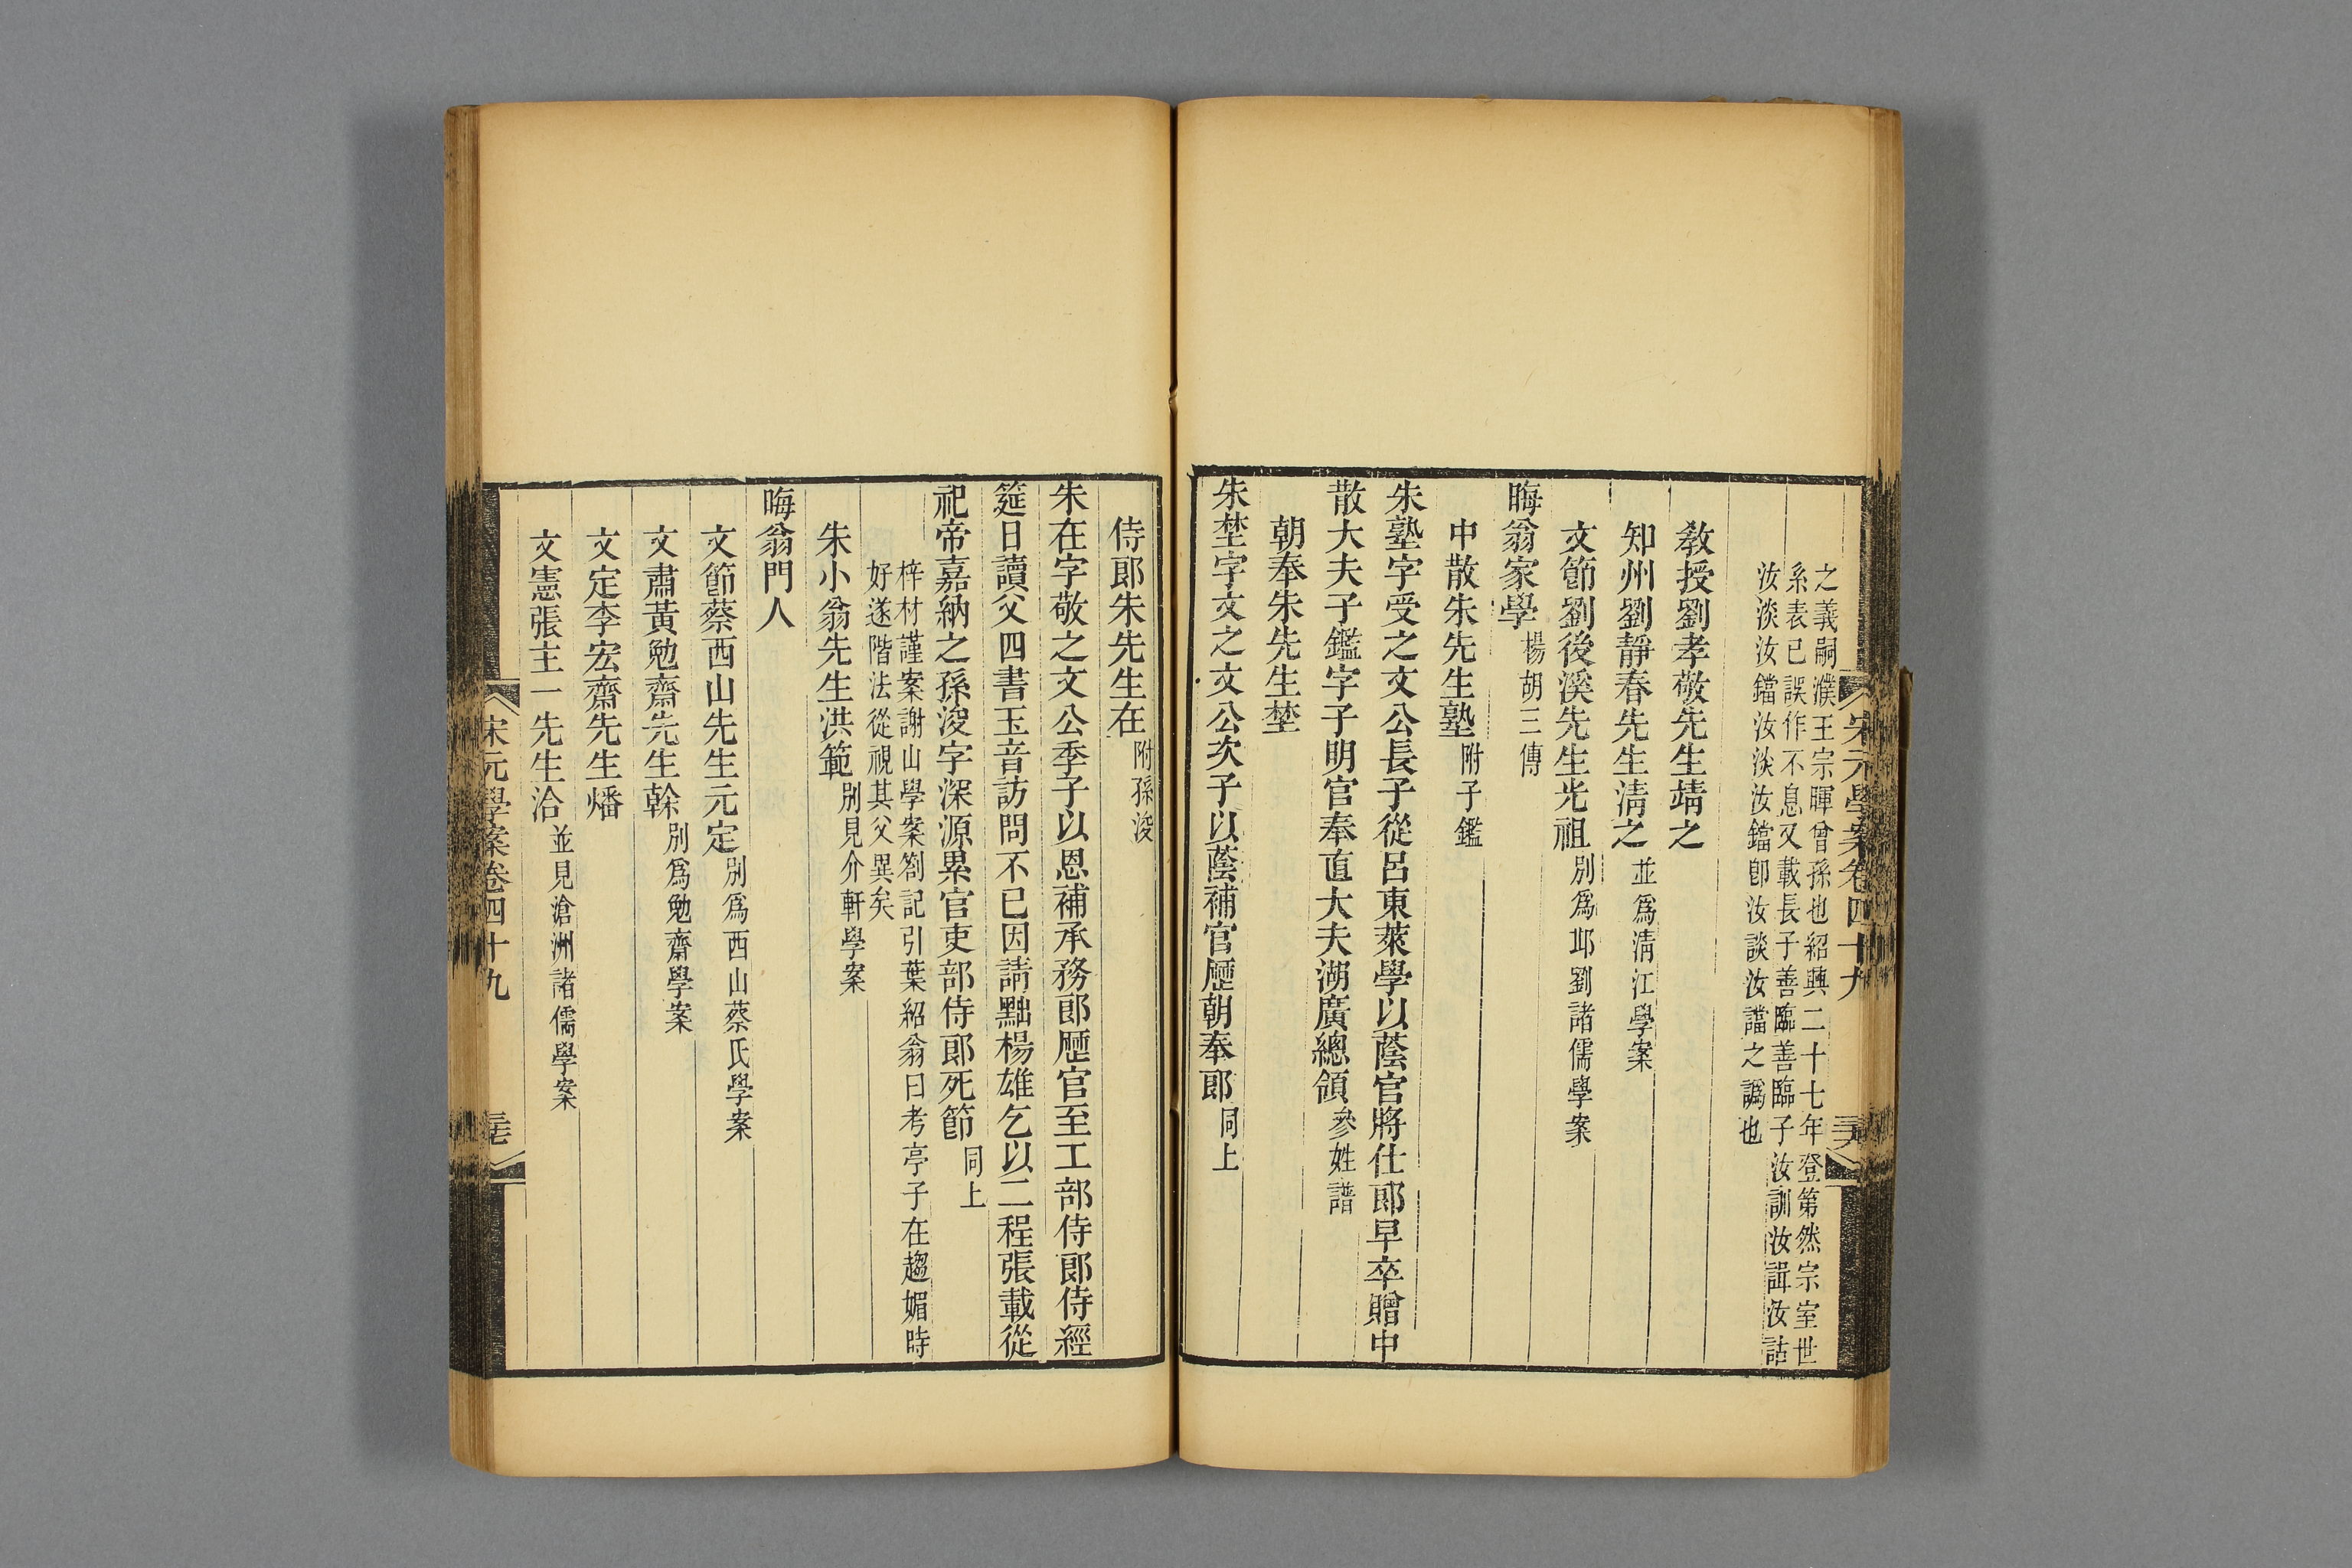 宋元學案卷四十九
之義嗣濮王宗暉曾孫也紹興二十七年登第然宗室世
系表已誤作不息又載長子善臨善臨子汝訓汝誼汝詁
汝淡汝鐺汝淡汝鐺卽汝談汝讜之譌也
敎授劉孝敬先生靖之
知州劉靜春先生淸之並爲淸江學案
文節劉後溪先生光祖別爲邱劉諸儒學案
晦翁家學楊胡三傳
中散朱先生塾附子鑑
朱塾字受之文公長子從呂東萊學以蔭官將仕郎早卒贈中
散大夫子鑑字子明官奉直大夫湖廣總領參姓譜
朝奉朱先生埜
朱埜字文之文公次子以蔭補官歷朝奉郎同上
侍郎朱先生在附孫浚
朱在字敬之文公季子以恩補承務郎歷官至工部侍郎侍經
筵日讀父四書玉音訪問不已因請黜楊雄乞以二程張載從
祀帝嘉納之孫浚字深源累官吏部侍郎死節同上
梓材謹案謝山學案劄記引葉紹翁曰考亭子在趨媚時
好遂階法從視其父異矣
朱小翁先生洪範別見介軒學案
晦翁門人
文節蔡西山先生元定別爲西山蔡氏學案
文肅黃勉齋先生榦別爲勉齋學案
文定李宏齋先生燔
文憲張主一先生洽並見滄洲諸儒學案
宋元學案卷四十九